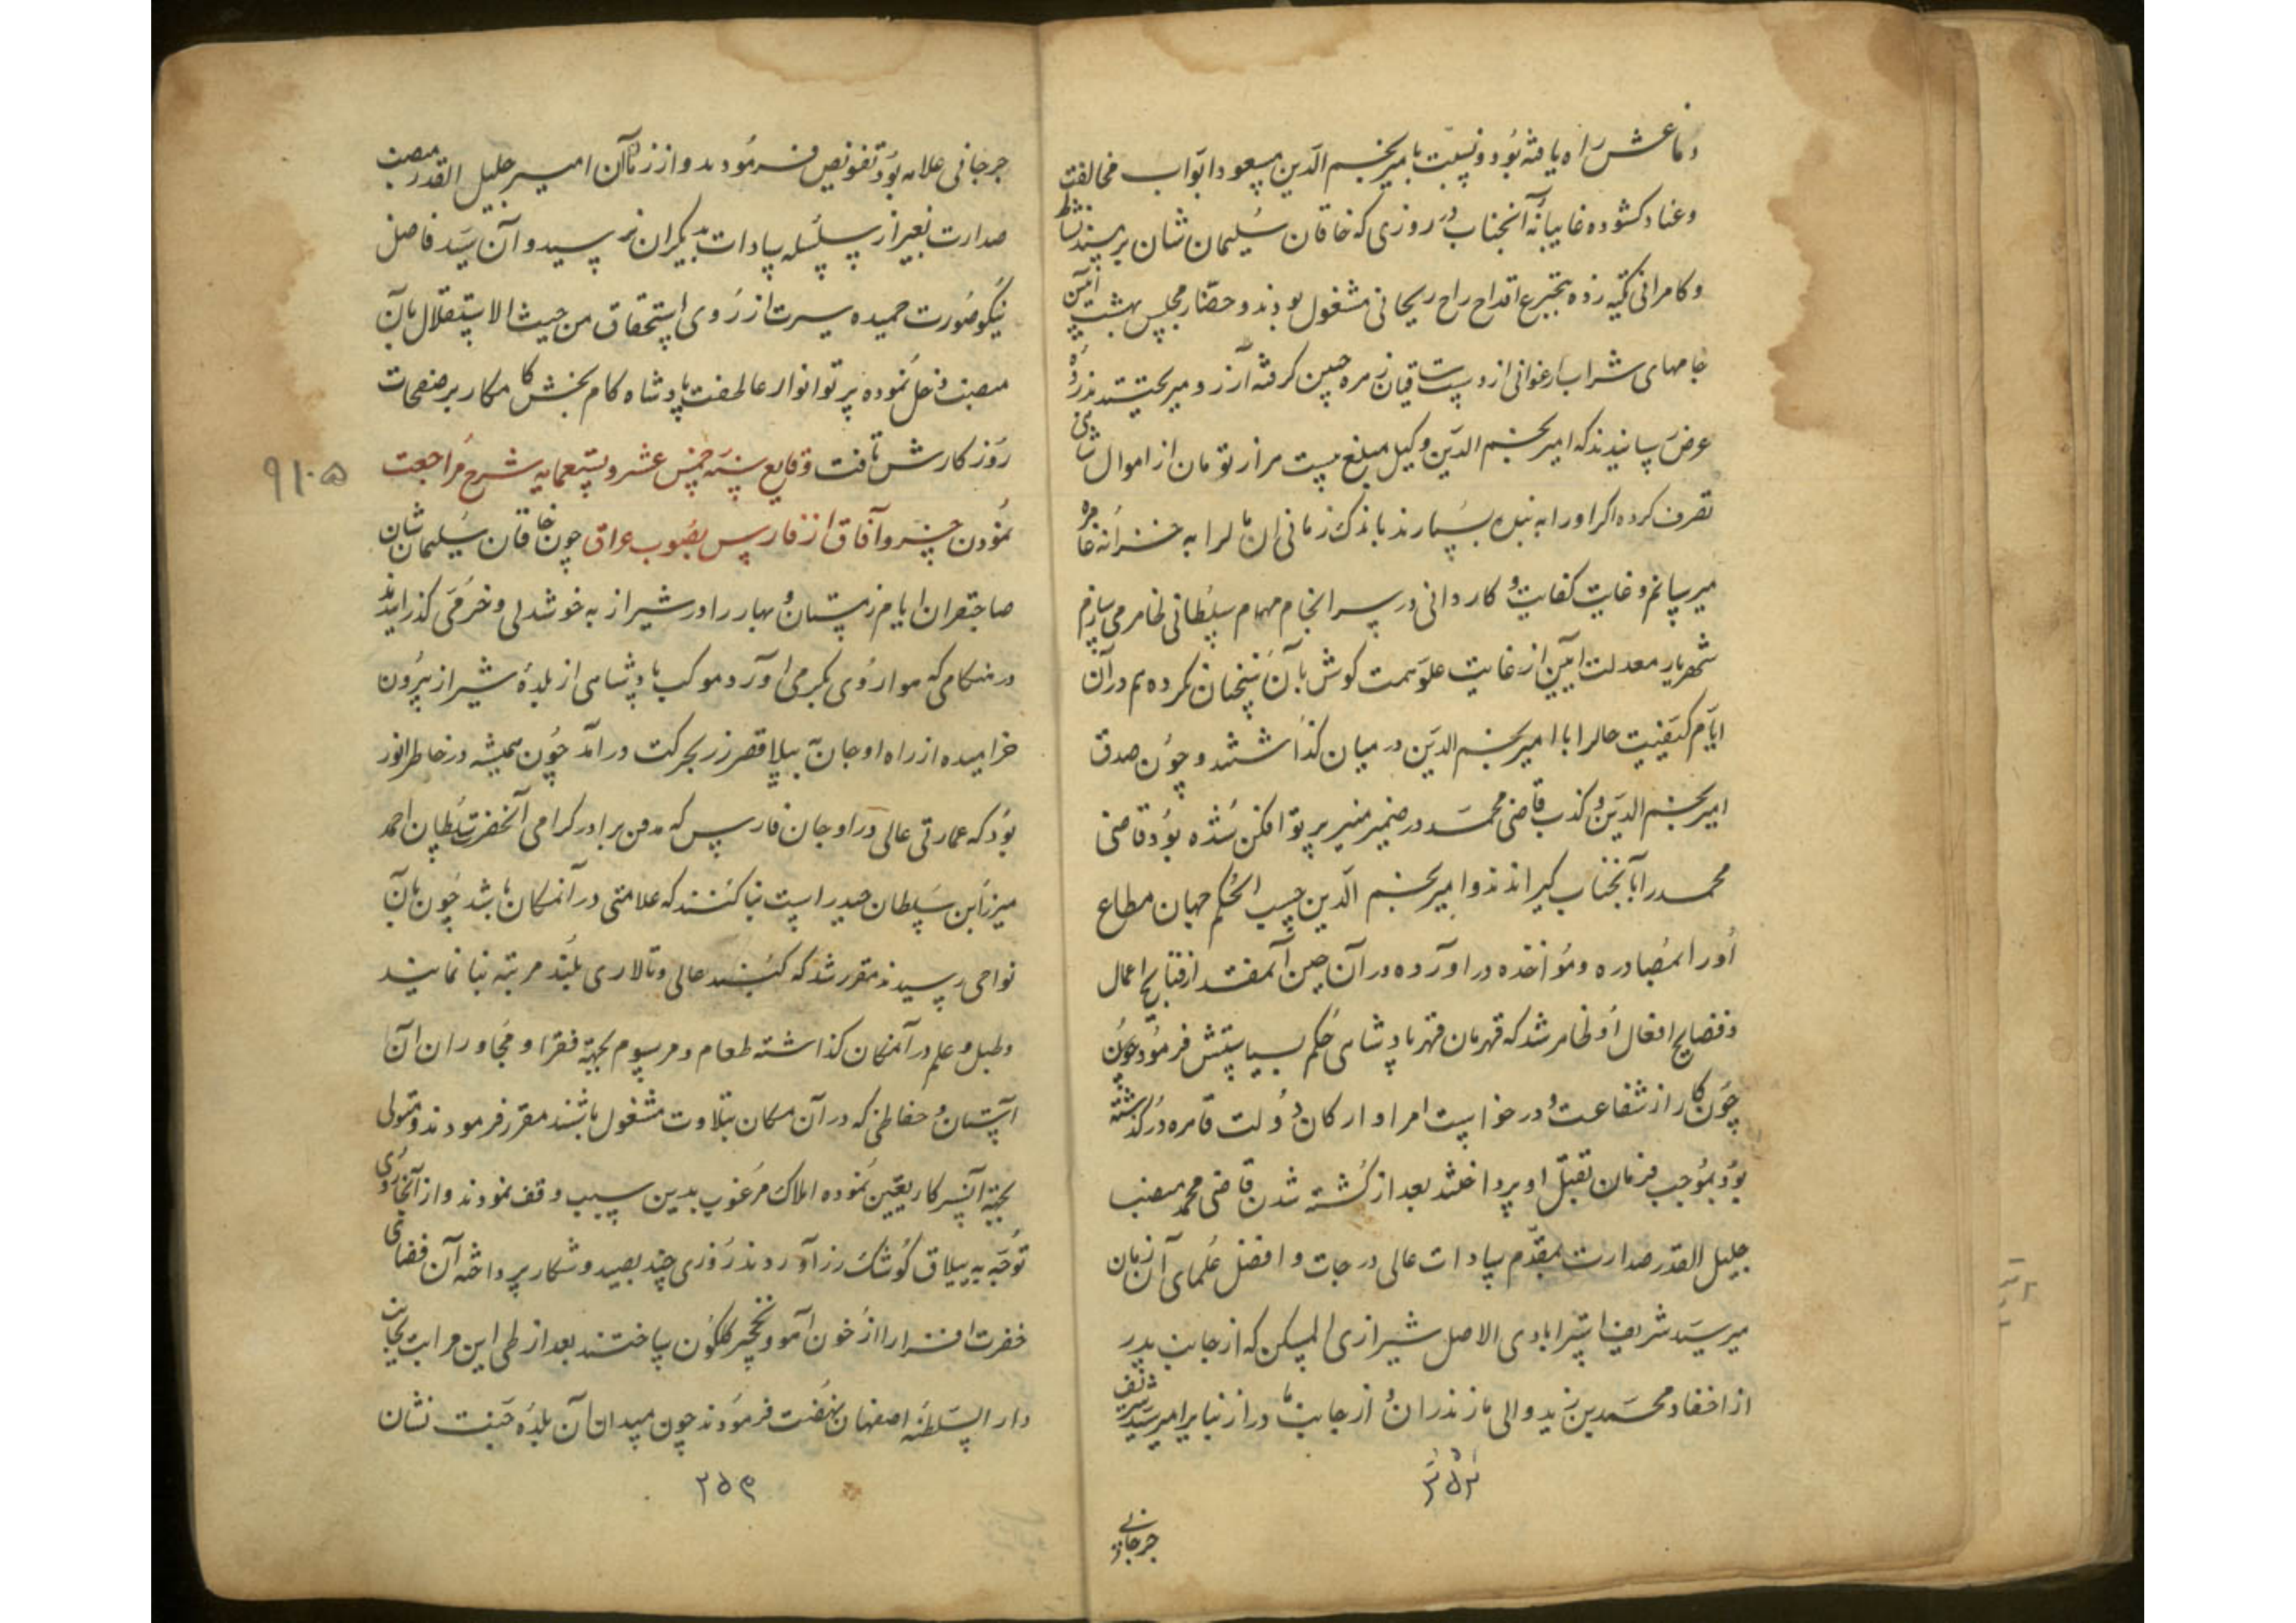 دماغش راه یافته بود و نسبت بامیر نجم الدین مسعود ابواب مخالفت
و عناد کشوده غایبانه آنجناب در روزی که خاقان سلیمان شان بر مسند نشاط
و کامرانی تکیه زده بتجرع اقداح راح ریحانی مشغول بودند و حضار مجلس بهشت آئین
جامهای شراب ارغوانی از دست ساقیان زهره جبین کرفته
عرض رسانیدند که امیر نجم الدین وکیل مبلغ بیست هزار تومان از اموال شاهی
تصرف کرده اکر او را به بنده بسپارند باندک زمانی ان مالرا به خزانه عامره
میرسانم و غایت کفایت و کاردانی در سرانجام مهام سلطانی ظاهر می سازم
شهریار معدلت آیین از غایت علو همت کوش بآن سخنان نکرده هم در آن
ایام کیفیت حالرا با امیر نجم الدین در میان کذاشتند و چون صدق
امیر نجم الدین و کذب قاضی محمد در ضمیر منیر پرتو افکن شده بود قاضی
محمد را بآنجناب کیرانذند و امیر نجم الدین حسب الحکم جهان مطاع
او را بمصادره و مؤاخذه در اورده در آن حین آنمقدار از قبایح اعمال
و فضایح افعال او ظاهر شد که قهرمان قهر پادشاهی حکم بسیاستش فرمود چون
چون کار از شفاعت و درخواست امرا و ارکان دولت قاهره درکذشته
بود بموجب فرمان بقتل او پرداختند بعد از کشته شدن قاضی محمد منصب
جلیل القدر صدارت بمقدم سادات عالی درجات و افضل علمای آن زمان
میر سید شریف استرابادی الاصل شیرازی المسکن که از جانب پدر
از احفاد محمد بن زید والی مازندران و از جانب مادر از نبایر امیر سید شریف
۲۵۲
جرجانی
جرجانی علامه بود تفویض فرمودند و از زمان آن امیر جلیل القدر منصب
صدارت بغیر از سلسله سادات بدیکران نرسید و آن سید فاضل
نیکو صورت حمیده سیرت از روی استحقاق من حیث الاستقلال بآن
منصب دخل نموده پرتو انوار عاطفت پادشاه کام بخش کامکار بر صفحات
روز کارش تافت وقایع سنه خمس عشر و تسعمایه شرح مراجعت
۹۱۰۵
نمودن خسرو آفاق از فارس بصوب عراق چون خاقان سلیمان شان
صاحبقران ایام زمستان و بهار را در شیراز به خوشدلی و خرمی کذرانیدند
در هنکامی که هوا روی بکرمی اورد موکب پادشاهی از بلدهٔ شیراز بیرون
خرامیده از راه اوجان به ییلاق قصر زر بحرکت درآمد چون همیشه در خاطر انور
بود که عمارتی عالی در اوجان فارس که مدفن برادر کرامی آنحضرت سلطان احمد
میرزا بن سلطان حیدر است بنا کنند که علامتی در آنمکان باشد چون بآن
نواحی رسیدند مقرر شد که کنبد عالی و تالاری بلند مرتبه بنا نمایند
و طبل و علم در آنمکان کذاشته طعام و مرسوم بجهة فقرا و مجاوران آن
آستان و حفاظی که در آن مکان بتلاوت مشغول باشند مقرر فرمودند و متولی
بجهة آنسرکار تعیین نموده املاک مرغوب بدین سبب وقف نمودند و از آنجا روی
توجه به ییلاق کوشک زر آوردند روزی چند بصید و شکار پرداخته آن فضای
خضرت افزا را از خون آهو و نخجیر کلکون ساختند بعد از طی این مراتب بجانب
دار السلطنه اصفهان نهضت فرمودند چون میدان آن بلده جنت نشان
۲۵۳